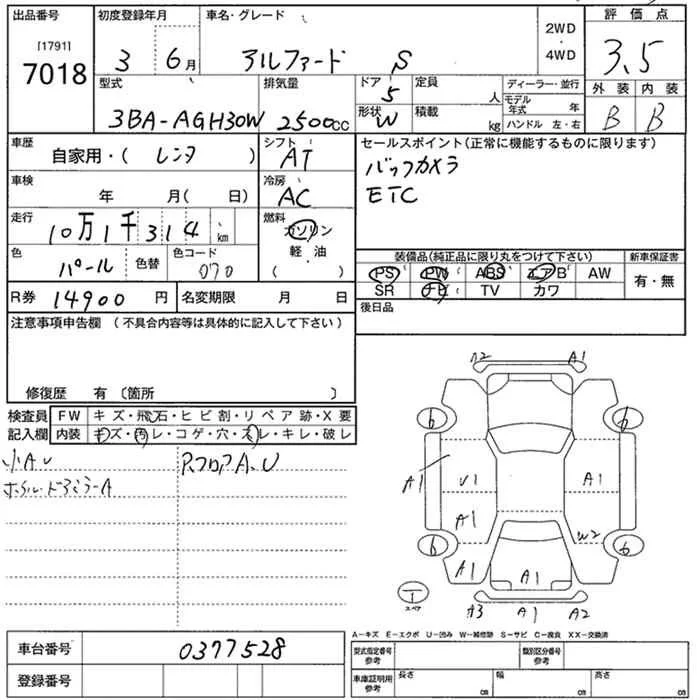 出品番号
[1791]
7018
初度登録年月
3 6月
車名・グレード
アルファード S
2WD
・
4WD
評価点
3.5
外装 内装
B B
型式
3BA-AGH30W
排気量
2500cc
ドア
5
形状
W
定員
人
積載
kg
ディーラー・並行
モデル年式 年
ハンドル 左・右
車歴
自家用・( レンタ )
シフト
AT
車検
年 月( 日)
冷房
AC
走行
10万1千314km
燃料
ガソリン
軽・油
( )
色
パール
色替
色コード
070
R券 14900円
名変期限 月 日
セールスポイント(正常に機能するものに限ります)
バックカメラ
ETC
装備品(純正品に限り丸をつけて下さい)
PS PW ABS エアB AW
SR ナビ TV カワ
新車保証書
有・無
後日品
注意事項申告欄 (不具合内容等は具体的に記入して下さい)
修復歴 有 〔箇所 〕
検査員記入欄
FW キズ・飛石・ヒビ割・リペア跡・X要
内装 キズ・汚レ・コゲ・穴・スレ・キレ・破レ
小A.U
RフロアA.U
A2 A1
6 6
A1 U1 A1
A1 W2
6 6
A1 A1
1
スペア
A3 A1 A2
A-キズ E-エクボ U-凹み W-補修跡 S-サビ C-腐食 XX-交換済
車台番号 0377528
登録番号
型式指定番号
参考
類別区分番号
参考
車庫証明用
参考
長さ cm
幅 cm
高さ cm